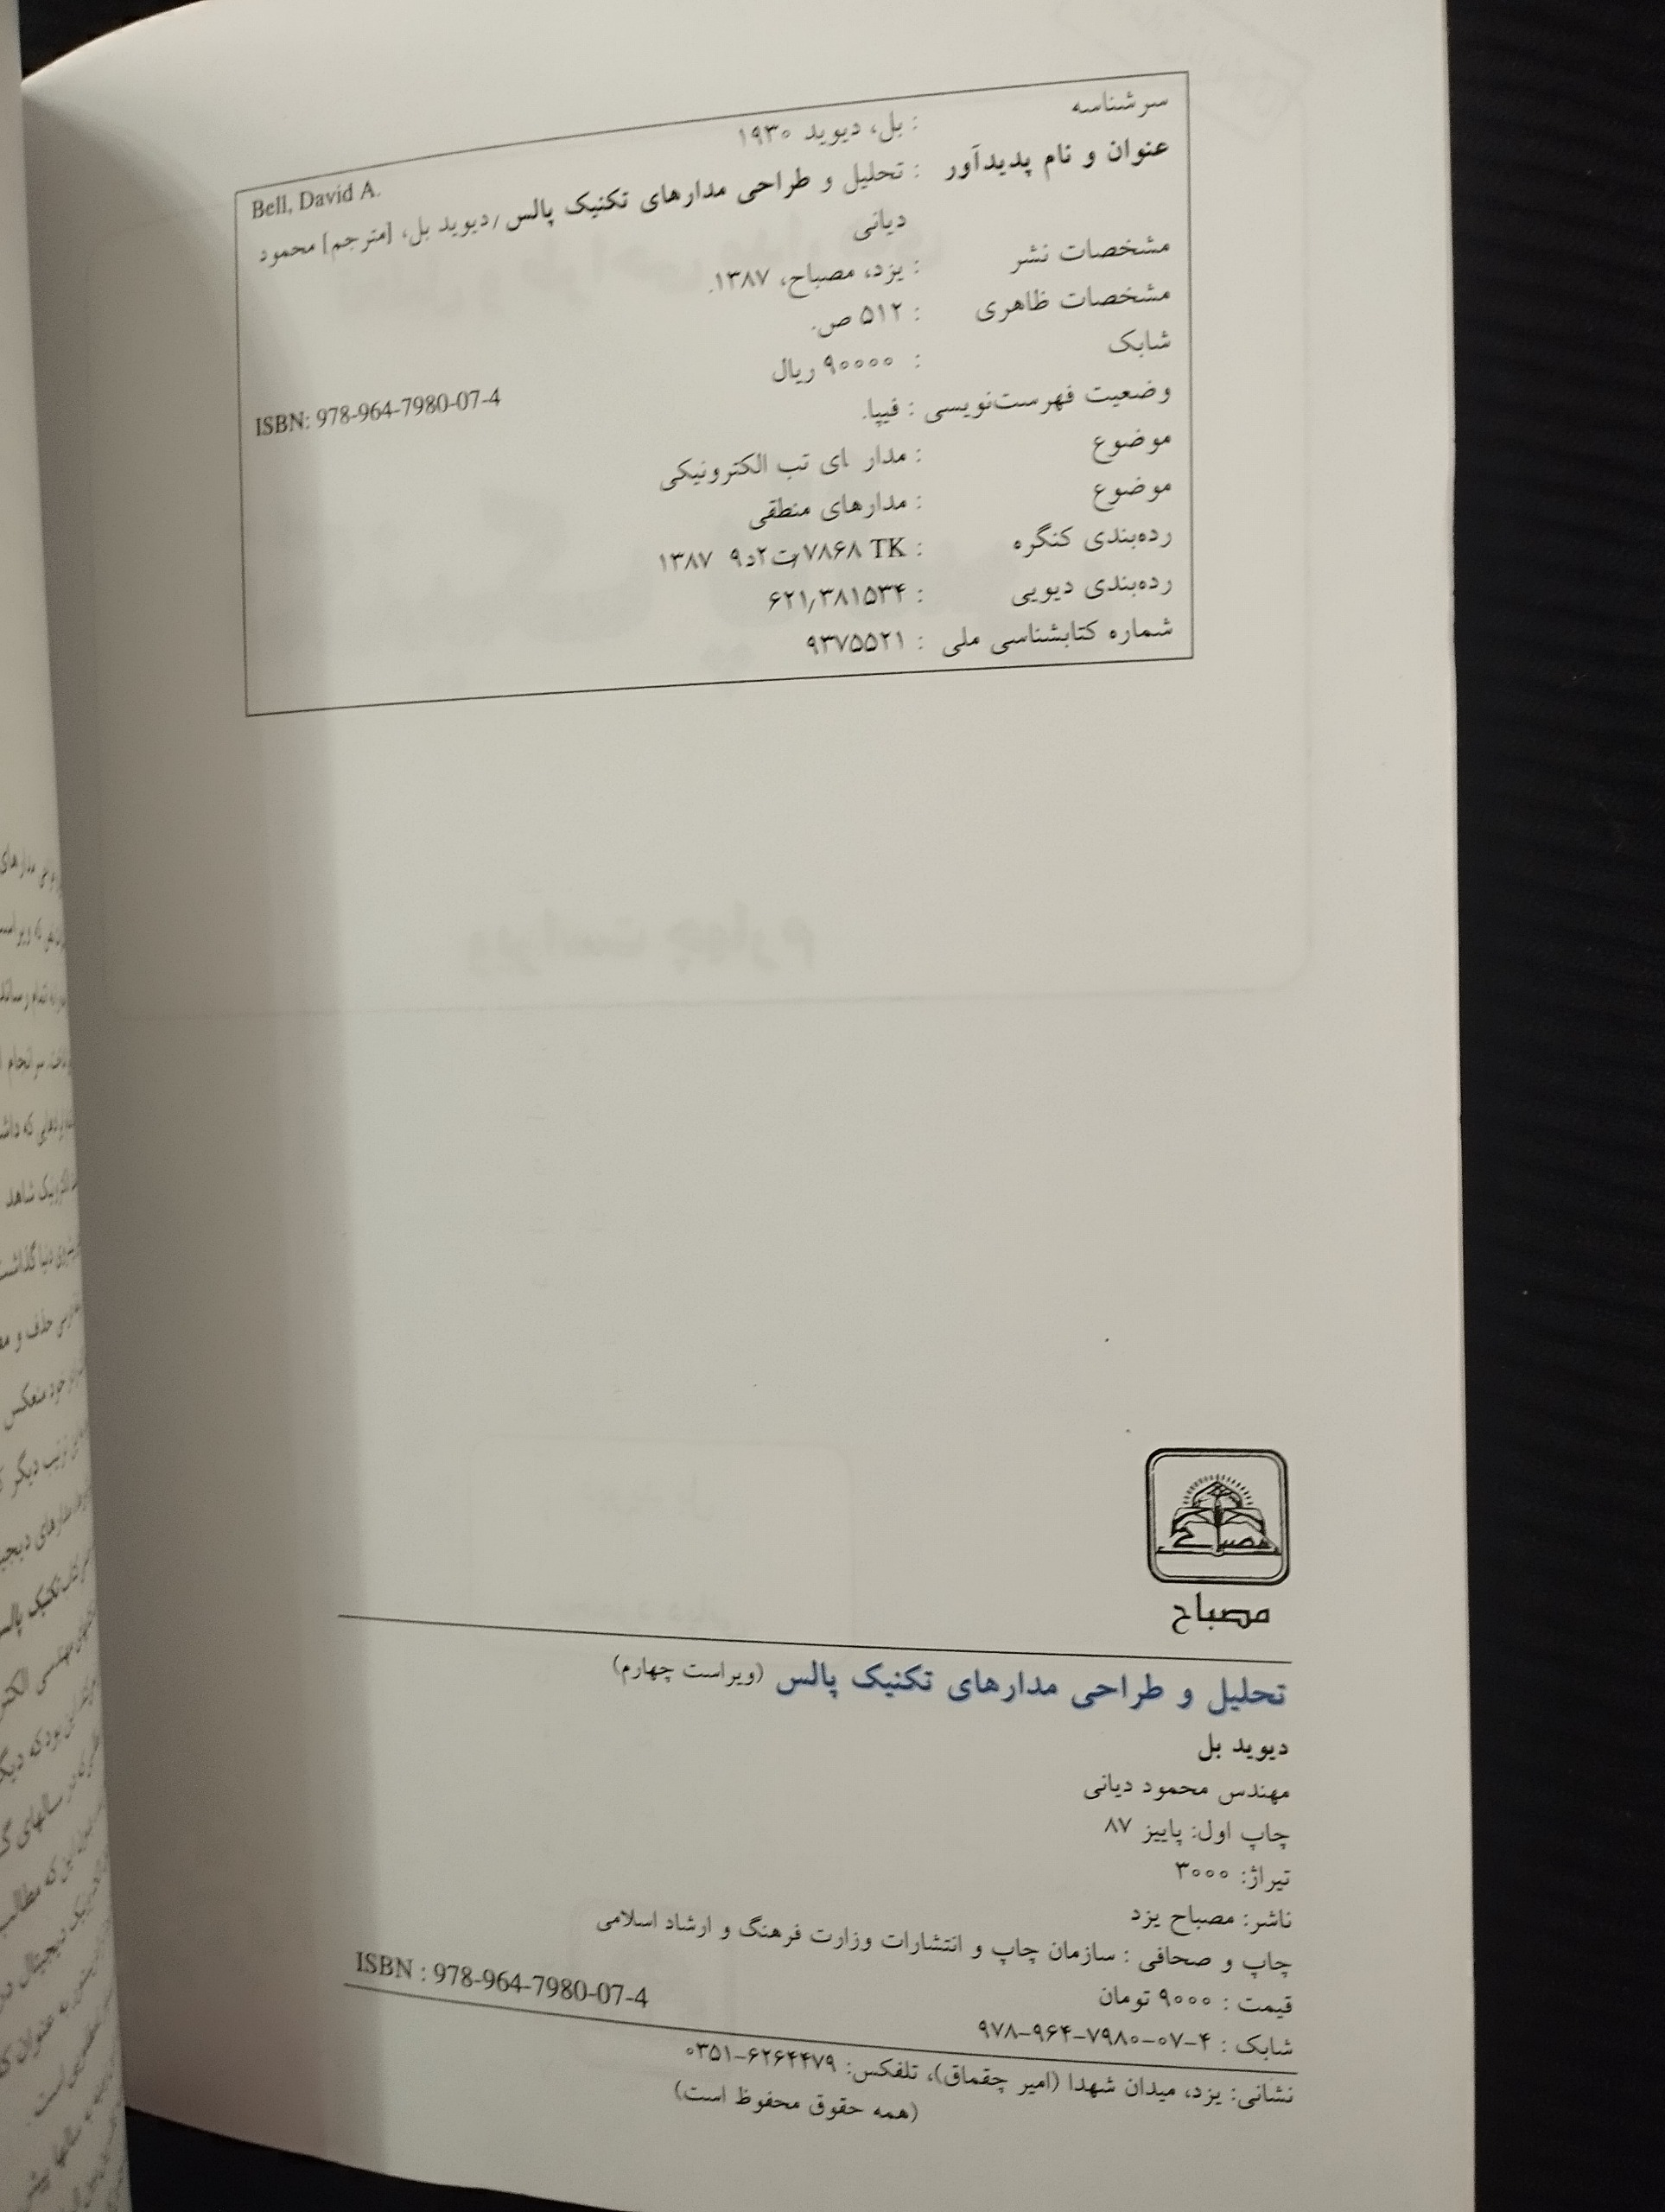 سرشناسه : بل، دیوید ۱۹۳۰ Bell, David A.
عنوان و نام پدیدآور : تحلیل و طراحی مدارهای تکنیک پالس / دیوید بل، [مترجم] محمود
دیانی
مشخصات نشر : یزد، مصباح، ۱۳۸۷.
مشخصات ظاهری : ۵۱۲ ص.
شابک : ۹۰۰۰۰ ریال ISBN: 978-964-7980-07-4
وضعیت فهرست‌نویسی : فیپا.
موضوع : مدار ای تب الکترونیکی
موضوع : مدارهای منطقی
رده‌بندی کنگره : TK ۷۸۶۸/ت۲د۹ ۱۳۸۷
رده‌بندی دیویی : ۶۲۱/۳۸۱۵۳۴
شماره کتابشناسی ملی : ۹۳۷۵۵۲۱
مصباح
مصباح
تحلیل و طراحی مدارهای تکنیک پالس (ویراست چهارم)
دیوید بل
مهندس محمود دیانی
چاپ اول: پاییز ۸۷
تیراژ: ۳۰۰۰
ناشر: مصباح یزد
چاپ و صحافی : سازمان چاپ و انتشارات وزارت فرهنگ و ارشاد اسلامی
قیمت : ۹۰۰۰ تومان
شابک : ۴-۰۷-۷۹۸۰-۹۶۴-۹۷۸ ISBN : 978-964-7980-07-4
نشانی: یزد، میدان شهدا (امیر چقماق)، تلفکس: ۶۲۶۴۴۷۹-۰۳۵۱
(همه حقوق محفوظ است)